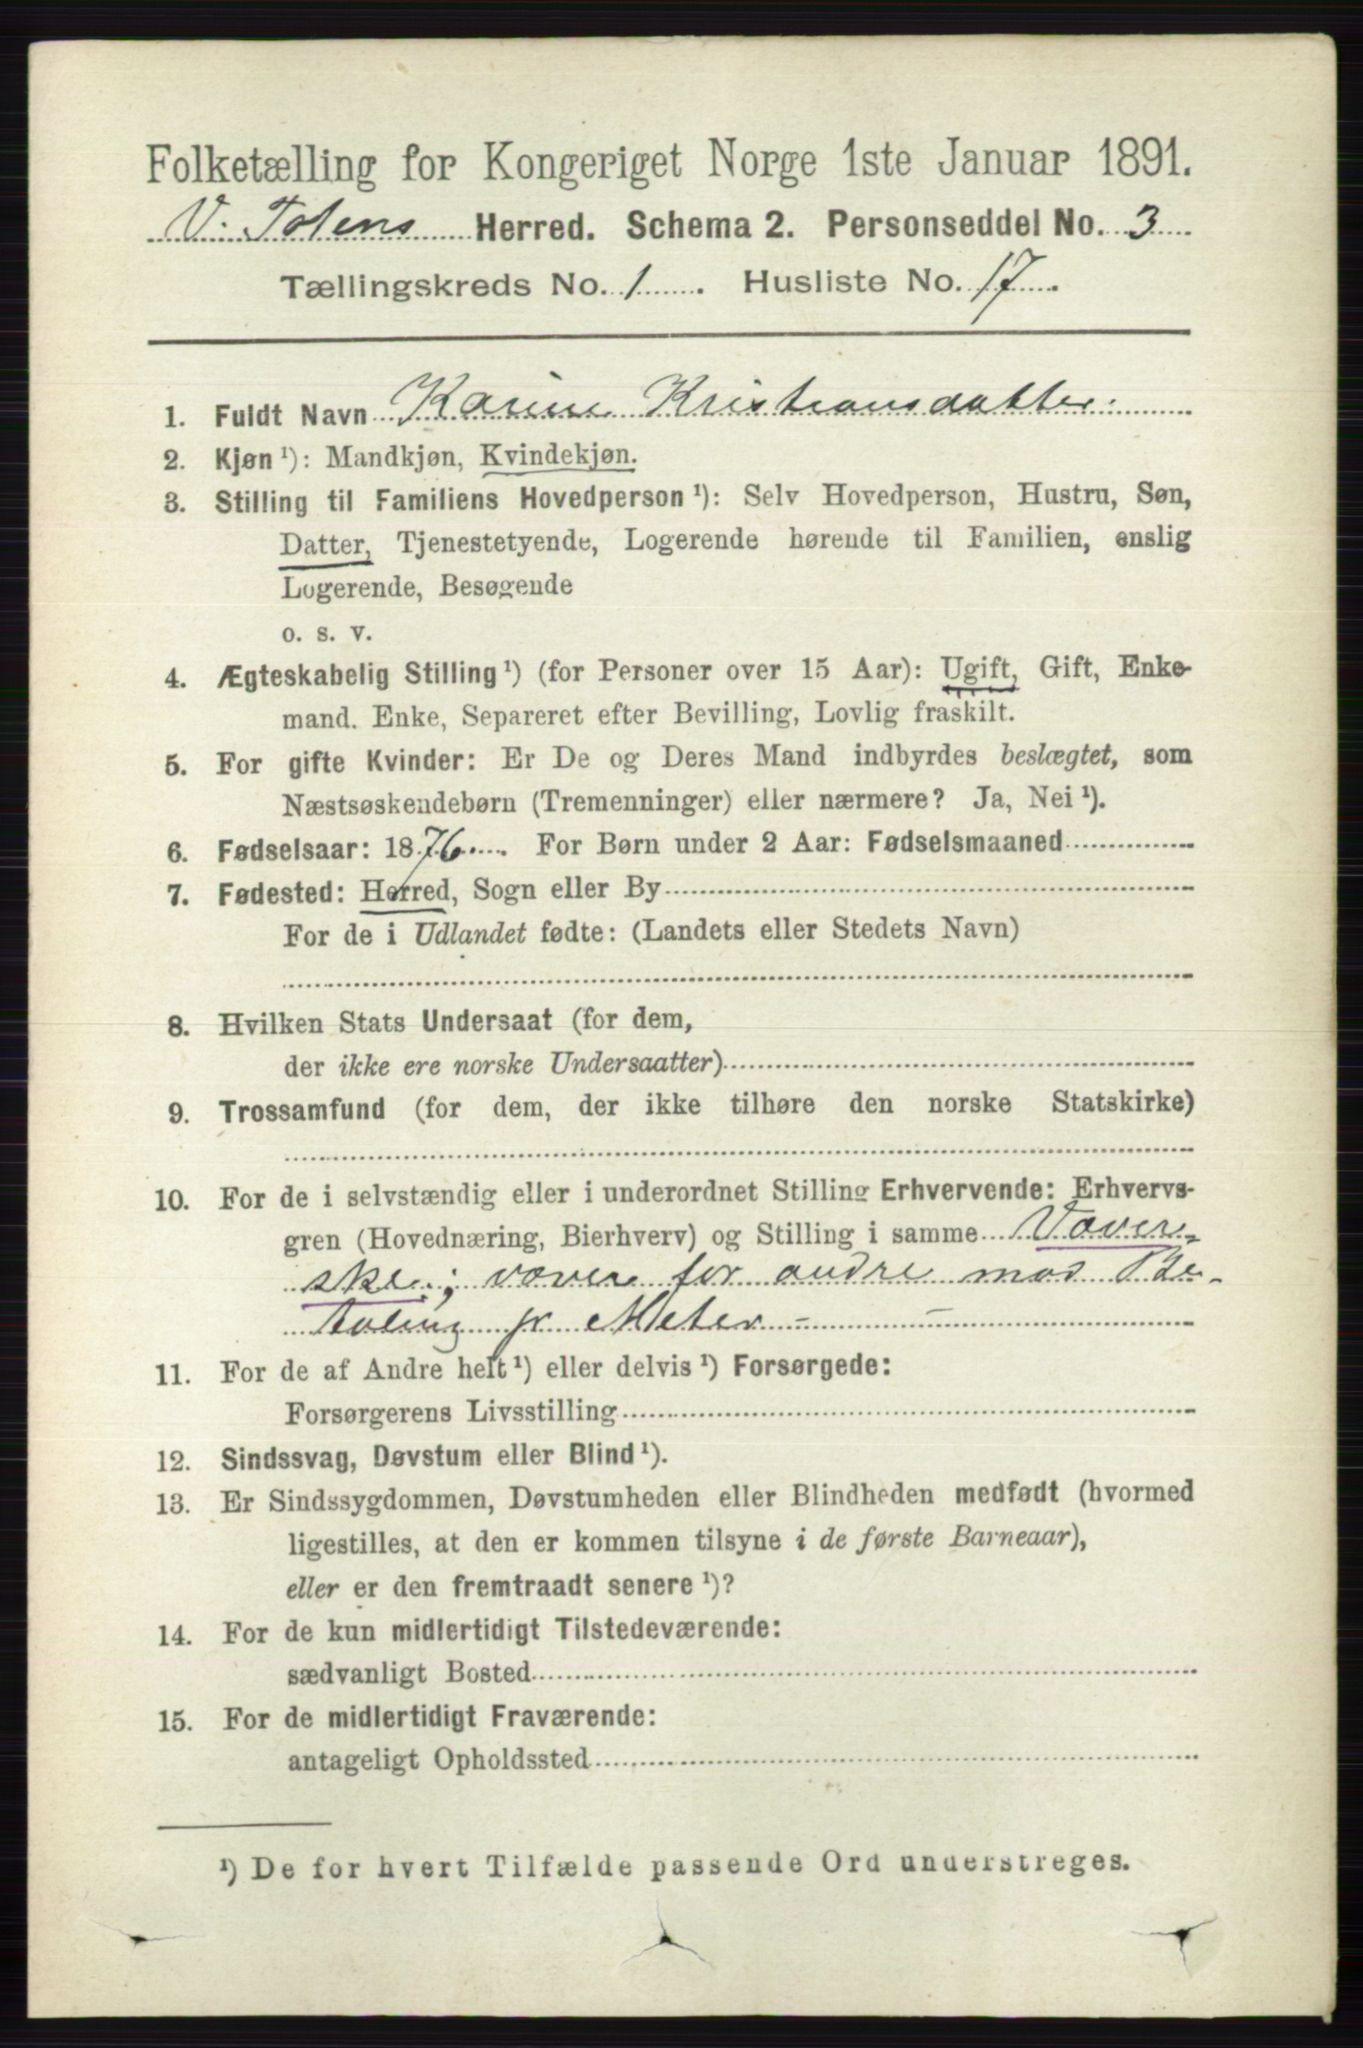 Folketælling for Kongeriget Norge 1ste Januar 1891.
V. Totens Herred. Schema 2. Personseddel No. 3
Tællingskreds No. 1. Husliste No. 17.
1. Fuldt Navn Karine Kristiansdatter.
2. Kjøn ¹): Mandkjøn, Kvindekjøn.
3. Stilling til Familiens Hovedperson ¹): Selv Hovedperson, Hustru, Søn,
Datter, Tjenestetyende, Logerende hørende til Familien, enslig
Logerende, Besøgende
o. s. v.
4. Ægteskabelig Stilling ¹) (for Personer over 15 Aar): Ugift, Gift, Enke-
mand. Enke, Separeret efter Bevilling, Lovlig fraskilt.
5. For gifte Kvinder: Er De og Deres Mand indbyrdes beslægtet, som
Næstsøskendebørn (Tremenninger) eller nærmere? Ja, Nei ¹).
6. Fødselsaar: 1876. For Børn under 2 Aar: Fødselsmaaned
7. Fødested: Herred, Sogn eller By
For de i Udlandet fødte: (Landets eller Stedets Navn)
8. Hvilken Stats Undersaat (for dem,
der ikke ere norske Undersaatter)
9. Trossamfund (for dem, der ikke tilhøre den norske Statskirke)
10. For de i selvstændig eller i underordnet Stilling Erhvervende: Erhvervs-
gren (Hovednæring, Bierhverv) og Stilling i samme Væver-
ske; væver for andre mod Be-
taling pr Meter - -
11. For de af Andre helt ¹) eller delvis ¹) Forsørgede:
Forsørgerens Livsstilling
12. Sindssvag, Døvstum eller Blind ¹).
13. Er Sindssygdommen, Døvstumheden eller Blindheden medfødt (hvormed
ligestilles, at den er kommen tilsyne i de første Barneaar),
eller er den fremtraadt senere ¹)?
14. For de kun midlertidigt Tilstedeværende:
sædvanligt Bosted
15. For de midlertidigt Fraværende:
antageligt Opholdssted
¹) De for hvert Tilfælde passende Ord understreges.